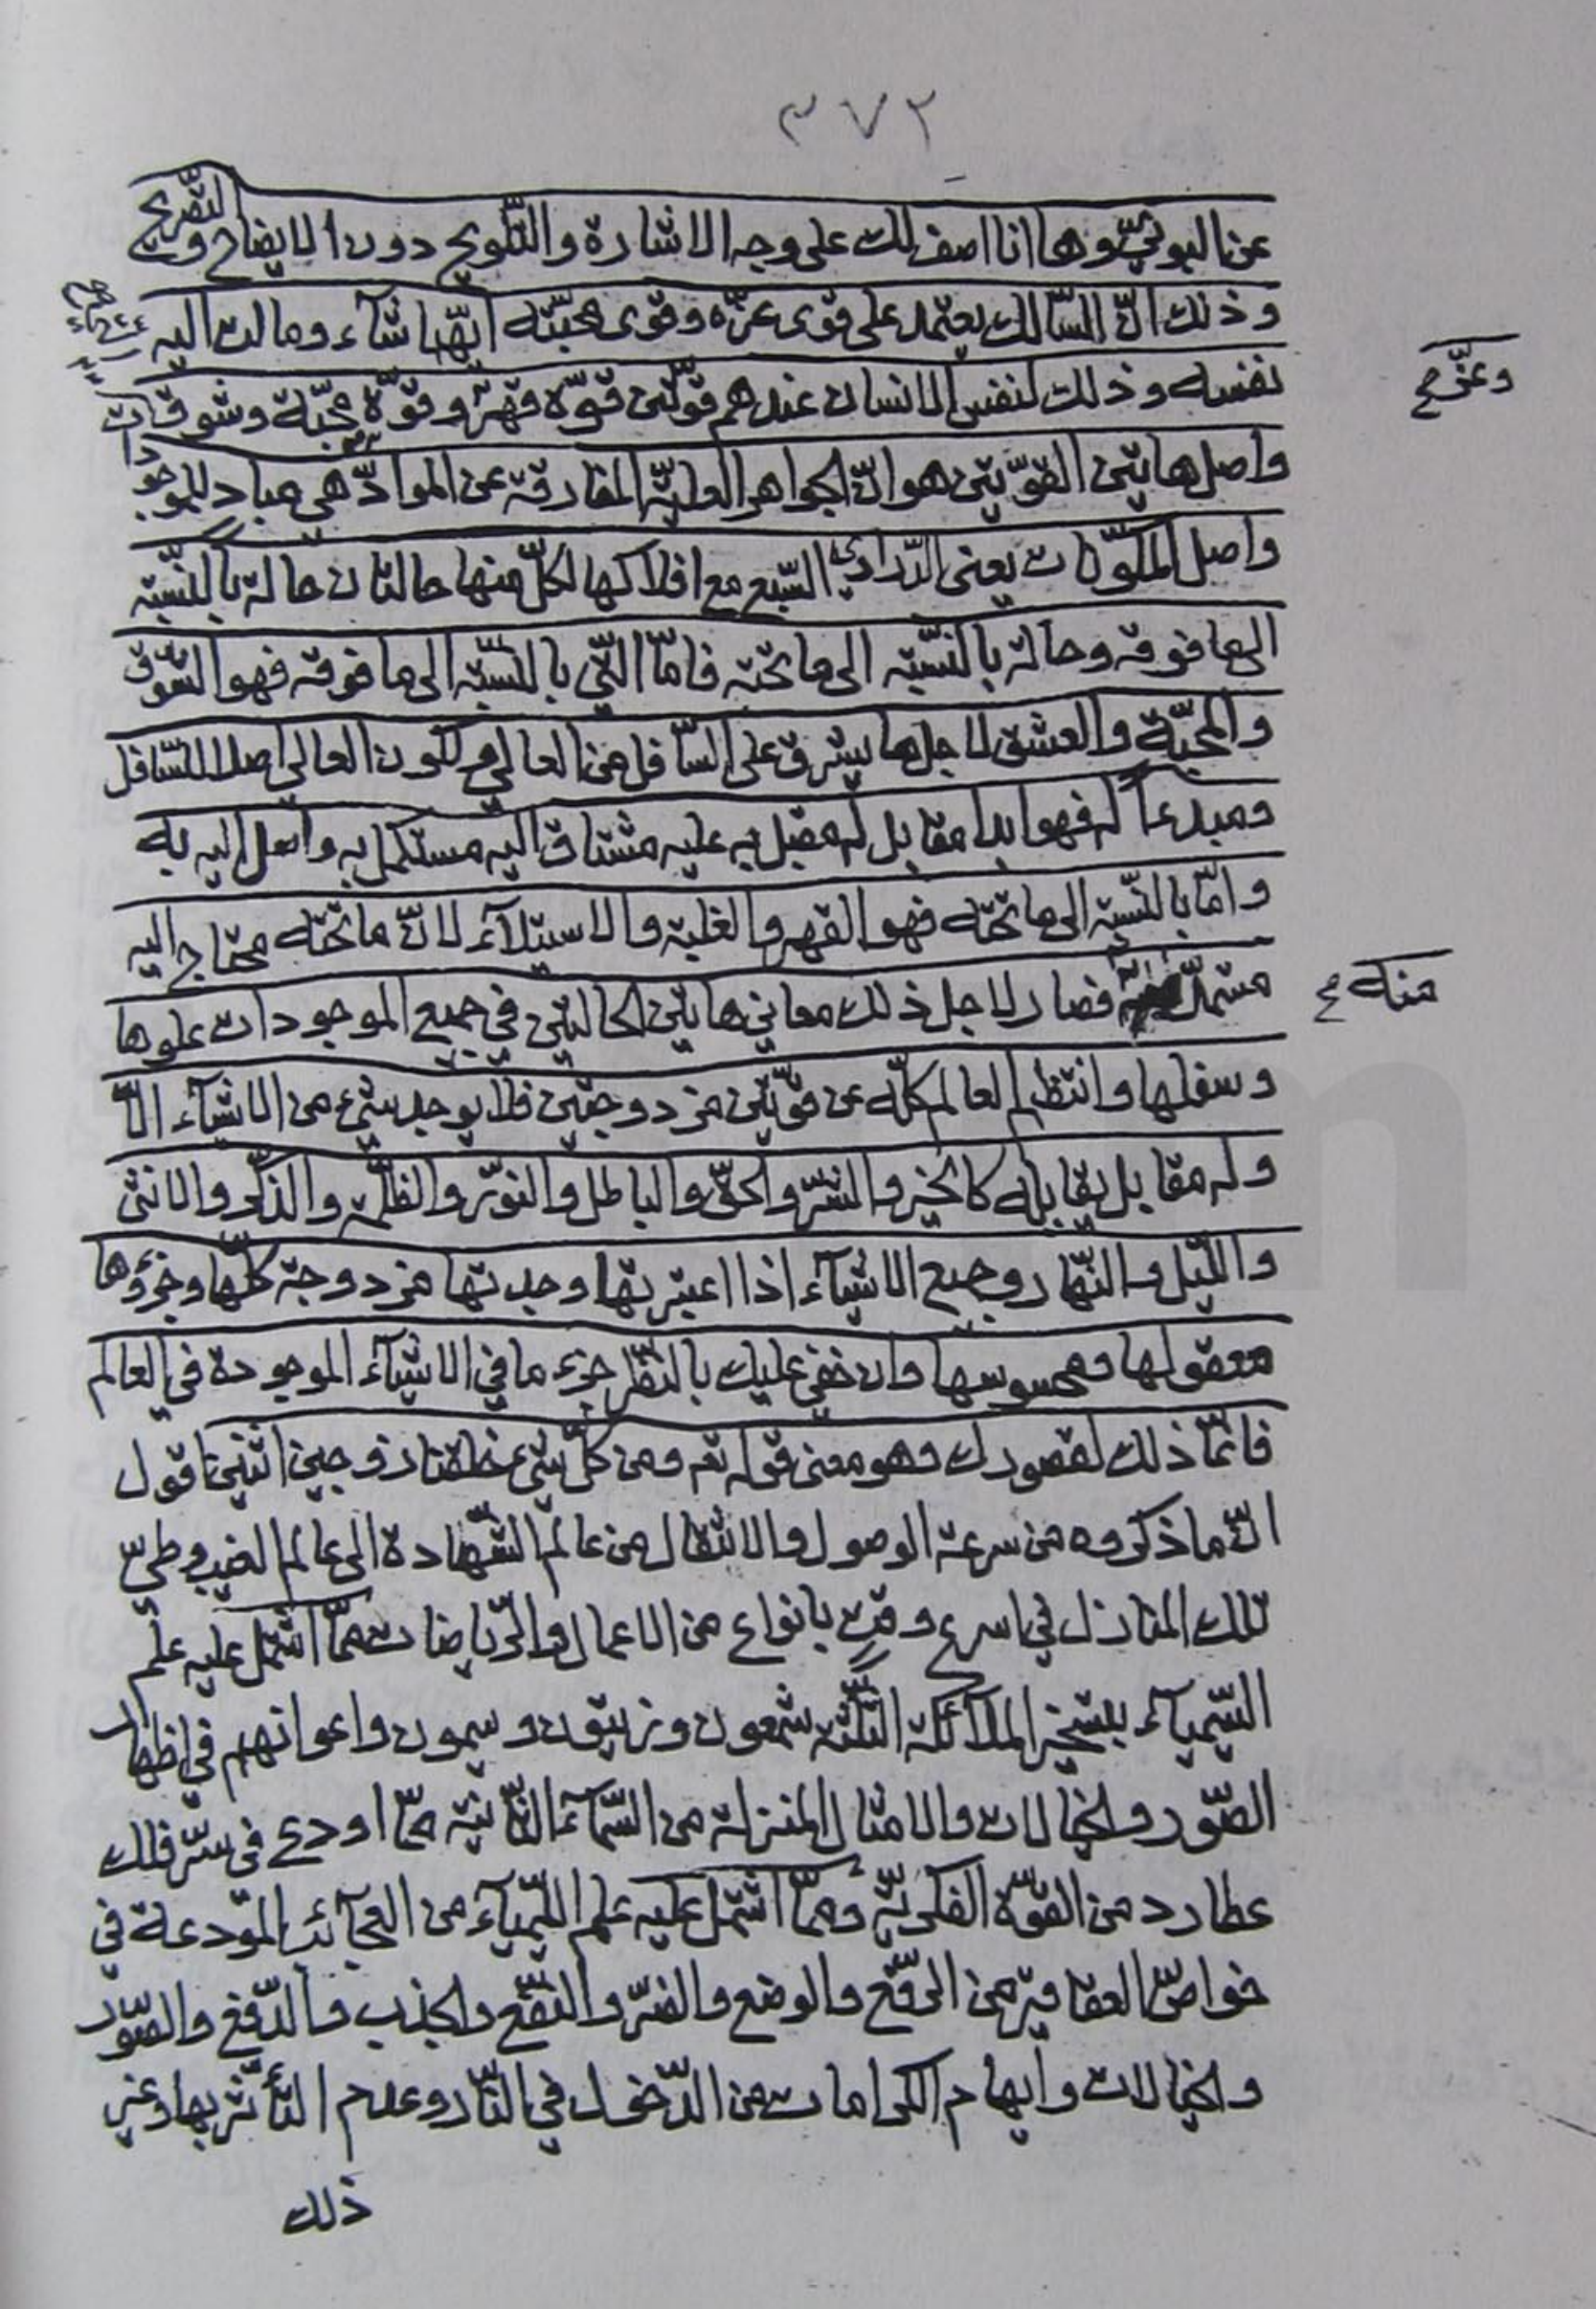 ٣٧٢
عن البوني وها انا اصف لك على وجه الاشارة والتلويح دون الايضاح والتصريح
وذلك انّ السّالك يعتمد على قوى عزّه وقوى محبّته ايّهما شآء ومالت اليه
نفسه وذلك لنفس الانسان عندهم قوّتين قوّة قهر وقوّة محبّة وشوق
وعزّ صح
واصل هاتين القوّتين هو انّ الجواهر العاليّة المفارقة عن الموادّ هي مباد للموجودات
واصل المكوّنات يعنى الدّراري السّبع مع افلاكها لكلّ منها حالتان حالة بالنّسبة
الى ما فوقه وحالة بالنّسبة الى ما تحته فامّا الّتي بالنّسبة الى ما فوقه فهو الشّوق
والمحبّة والعشق لاجل ما يشرق على السّافل من العالي ولكون العالي اصلا للسّافل
ومبدءاً له فهو ابدا مقابل له مقبل عليه مشتاق اليه مستكمل به واصل اليه به
وامّا بالنّسبة الى ما تحته فهو القهر والغلبة والاستيلآء لانّ ما تحته محتاج اليه
مستمدّ فصار لاجل ذلك معاني هاتين الحالتين في جميع الموجودات علوها
منه صح
وسفلها وانتظم العالم كلّه عن قوّتين مزدوجتين فلا يوجد شيء من الاشيآء الّا
وله مقابل يقابله كالخير والشّرّ والحقّ والباطل والنّور والظّلمة والذّكر والانثى
واللّيل والنّهار وجميع الاشيآء اذا اعتبرتها وجدتها مزدوجة كلّها وجزؤها
معقولها ومحسوسها وان خفي عليك بالنّظر جزء ما في الاشيآء الموجودة في العالم
فانّما ذلك لقصورك وهو معنى قوله تعم ومن كلّ شيء خلقنا زوجين اثنين اقول
انّ ما ذكروه من سرعة الوصول والانتقال من عالم الشّهادة الى عالم الغيب وطيّ
تلك المنازل في اسرع وقت بانواع من الاعمال والرّياضات ممّا اشتمل عليه علم
السّيميآء بتسخير الملآئكة الثّلثة شمعون وزيتون وسيمون واعوانهم في اظهار
الصّور والخيالات والامثال المنزلة من السّمآء الثّانية ممّا اودع في سرّ فلك
عطارد من القوّة الفكريّة وممّا اشتمل عليه علم اللّيميآء من العجآئب المودعة في
خواصّ العقاقير من الرّفع والوضع والضّرّ والنّفع والجذب والدّفع والصّور
والخيالات وايهام الكرامات من الدّخول في النّار وعدم التأثّر بها وغير
ذلك